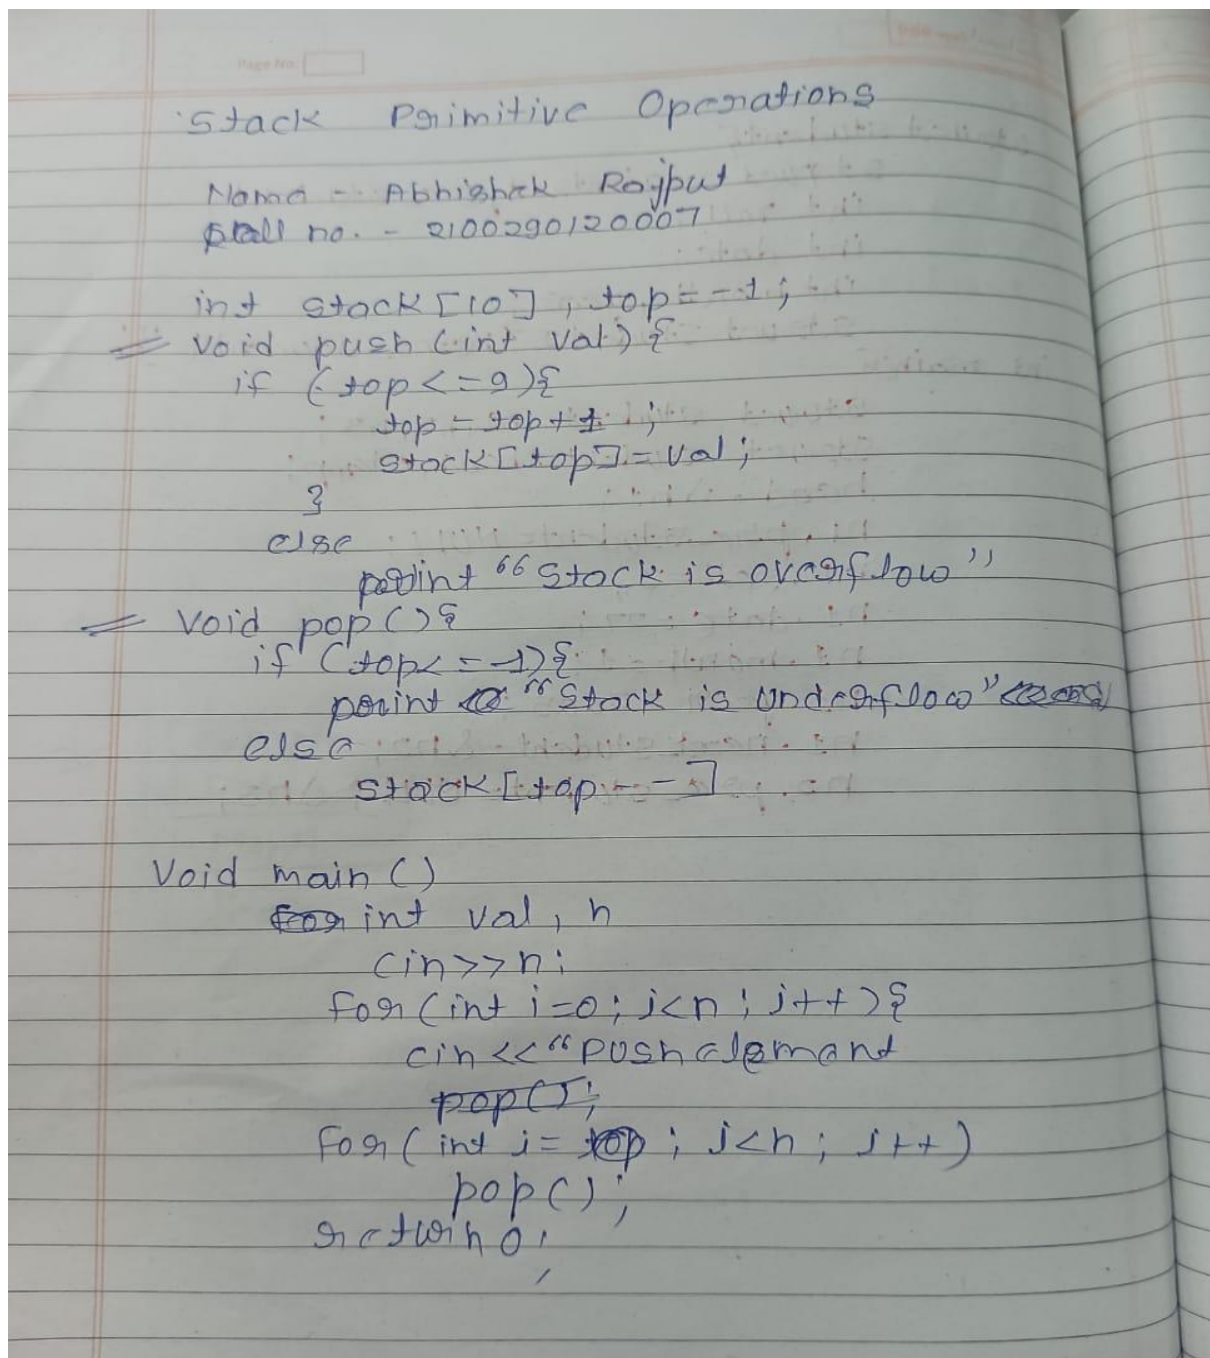 Page No.
Stack Primitive Operations
Name - Abhishek Rajput
Roll no. - 2100290120007
int stack[10], top=-1;
void push(int val){
if (top<=9){
top = top+1 ;
stack[top]=val;
}
else
print "Stack is overflow"
void pop(){
if (top<=-1){
print "Stack is underflow"
else
stack[top--]
Void main()
for int val, n
cin>>n;
for(int i=0; i<n; i++){
cin<<"Push element
pop();
for(int i= top; i<n; i++)
pop();
return 0;